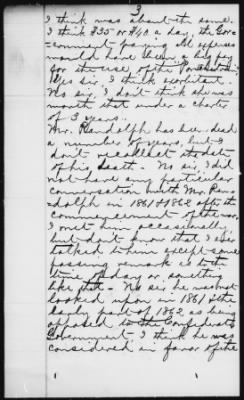 3
I think was about the same.
I think $35 or $40 a day, the Gov-
ernment paying all expenses
would have been fair pay
for the use of the
Yes sir I think exorbitant.
No sir, I don't think she was
worth that under a charter
of 3 years.
Mr. Randolph has been dead
a number of years, but I
don't recollect the date
of his death. No sir, I did
not have any particular
conversation with Mr. Ran-
dolph in 1861 & 1862 after the
commencement of the war.
I met him occasionally,
but don't know that I ever
talked to him except some
passing remark as to the
time of day or something
like that. No sir he was not
looked upon in 1861 & the
early part of 1862 as being
opposed to the Confederate
Government. I think he was
considered in favor of the